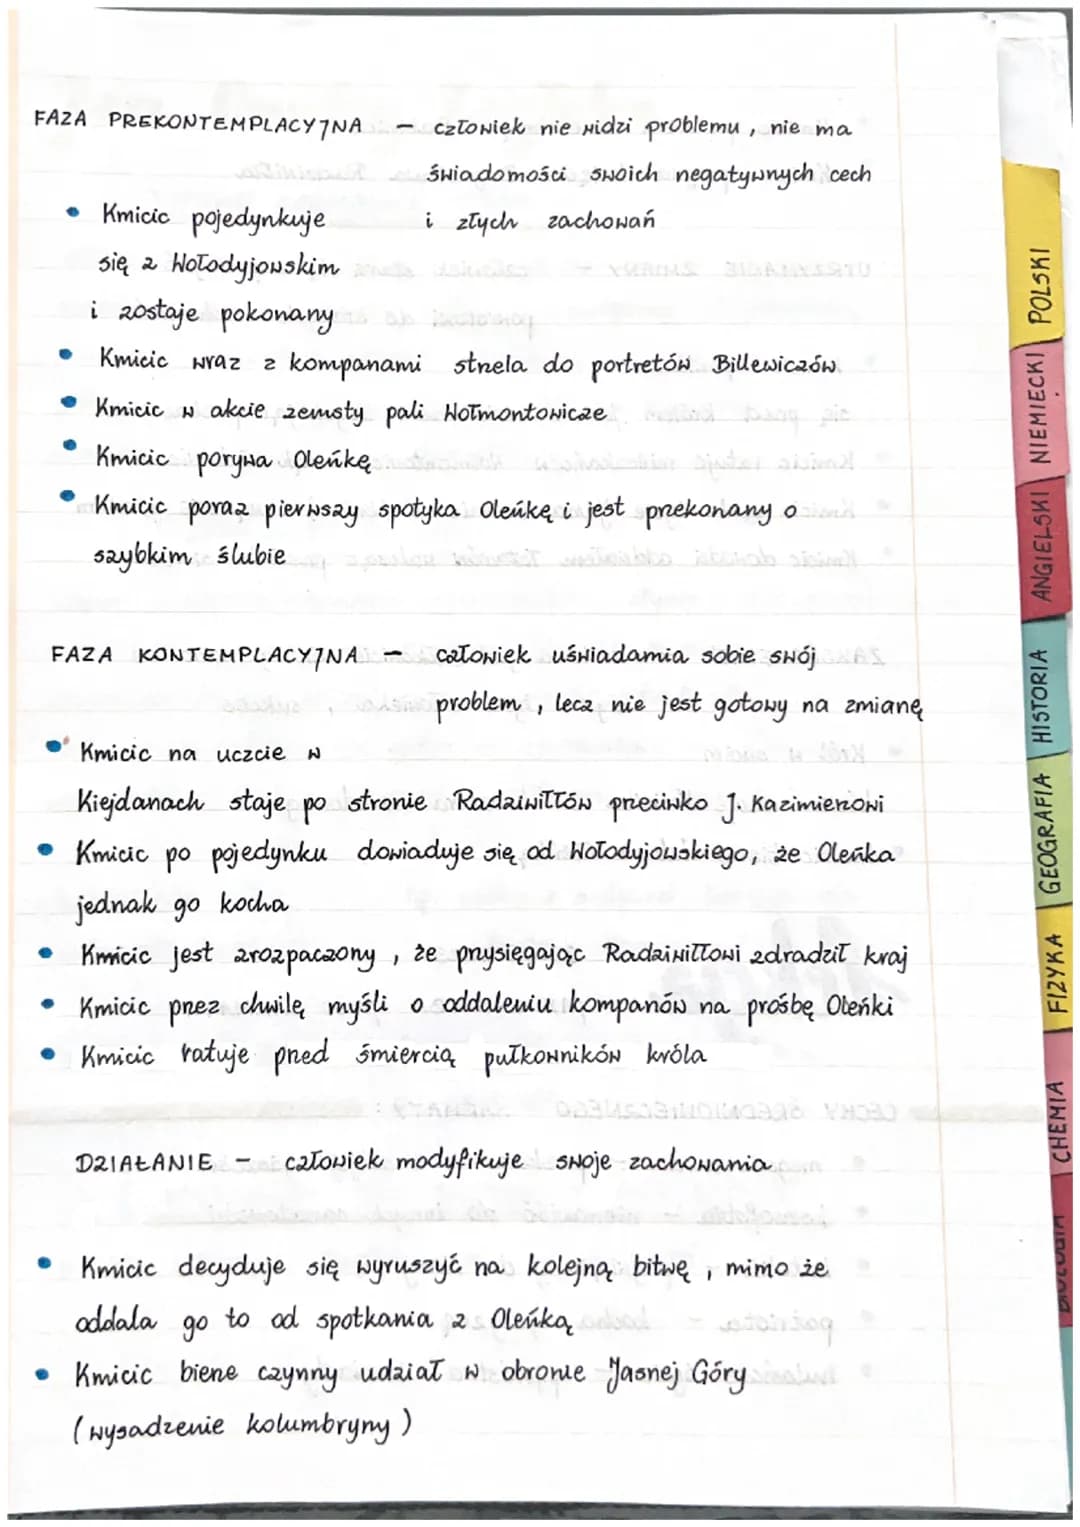 FAZA PREKONTEMPLACYJNA – człowiek nie widzi problemu, nie ma
świadomości swoich negatywnych cech
i złych zachowań
• Kmicic pojedynkuje
się z Wołodyjowskim
i zostaje pokonany
• Kmicic wraz z kompanami strzela do portretów Billewiczów
• Kmicic w akcie zemsty pali Wołmontowicze
• Kmicic porywa Oleńkę
• Kmicic poraz pierwszy spotyka Oleńkę i jest przekonany o
szybkim ślubie
FAZA KONTEMPLACYJNA – człowiek uświadamia sobie swój
problem, lecz nie jest gotowy na zmianę
• Kmicic na uczcie w
Kiejdanach staje po stronie Radziwiłłów przeciwko J. Kazimierzowi
• Kmicic po pojedynku dowiaduje się od Wołodyjowskiego, że Oleńka
jednak go kocha
• Kmicic jest zrozpaczony, że przysięgając Radziwiłłowi zdradził kraj
• Kmicic przez chwilę myśli o oddaleniu kompanów na prośbę Oleńki
• Kmicic ratuje przed śmiercią pułkowników króla
DZIAŁANIE – człowiek modyfikuje swoje zachowania
• Kmicic decyduje się wyruszyć na kolejną bitwę, mimo że
oddala go to od spotkania z Oleńką
• Kmicic bierze czynny udział w obronie Jasnej Góry
(wysadzenie kolumbryny)
POLSKI
NIEMIECKI
ANGIELSKI
HISTORIA
GEOGRAFIA
FIZYKA
CHEMIA